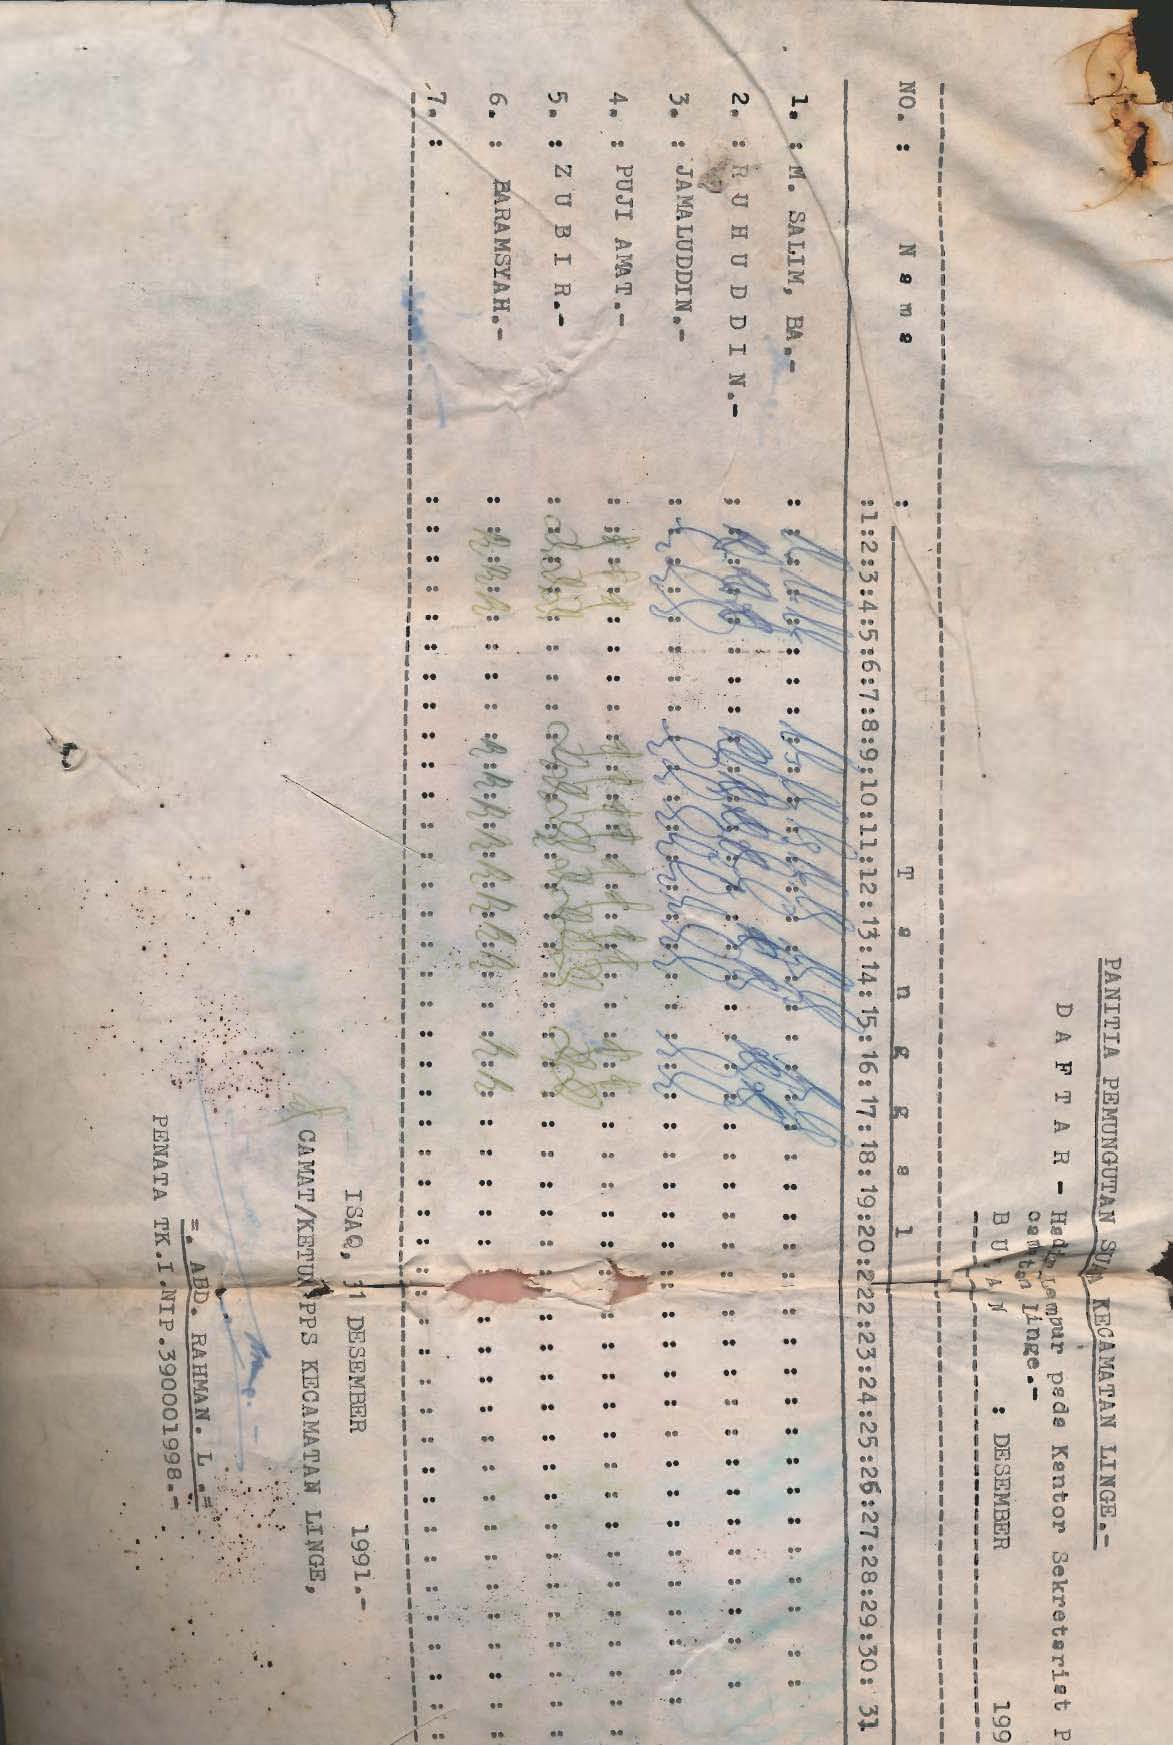 PANITIA PEMUNGUTAN SUA KECAMATAN LINGE.-
D A F T A R - Hadir Lempur pada Kantor Sekretariat P
camatan Linge.-
B U A N : DESEMBER 199
NO. : N a m a : T a n g g a l
:1:2:3:4:5:6:7:8:9:10:11:12:13:14:15:16:17:18:19:20:222:23:24:25:26:27:28:29:30: 31
1. : M. SALIM, BA.-
2. : R U H U D D I N.-
3. : JAMALUDDIN.-
4. : PUJI AMAT.-
5. : Z U B I R.-
6. : BARAMSYAH.-
7. :
ISAQ, 31 DESEMBER 1991.-
CAMAT/KETUA PPS KECAMATAN LINGE,
=. ABD. RAHMAN. L .=
PENATA TK.I.NIP.390001998.-